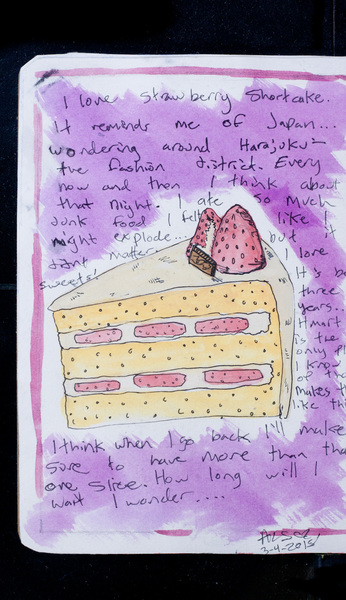 I love strawberry shortcake.
It reminds me of Japan...
wondering around Harajuku
the fashion district. Every
now and then I think about
that night. I ate so much
Junk food I felt like I
might explode... but it
didnt matter I love
sweets! It's be
three
years...
Hmart
is the
only pl
I know
of tha
makes t
like thi
I think when I go back I'll make
sure to have more than tha
one slice. How long will I
wait I wonder....
3-4-2015